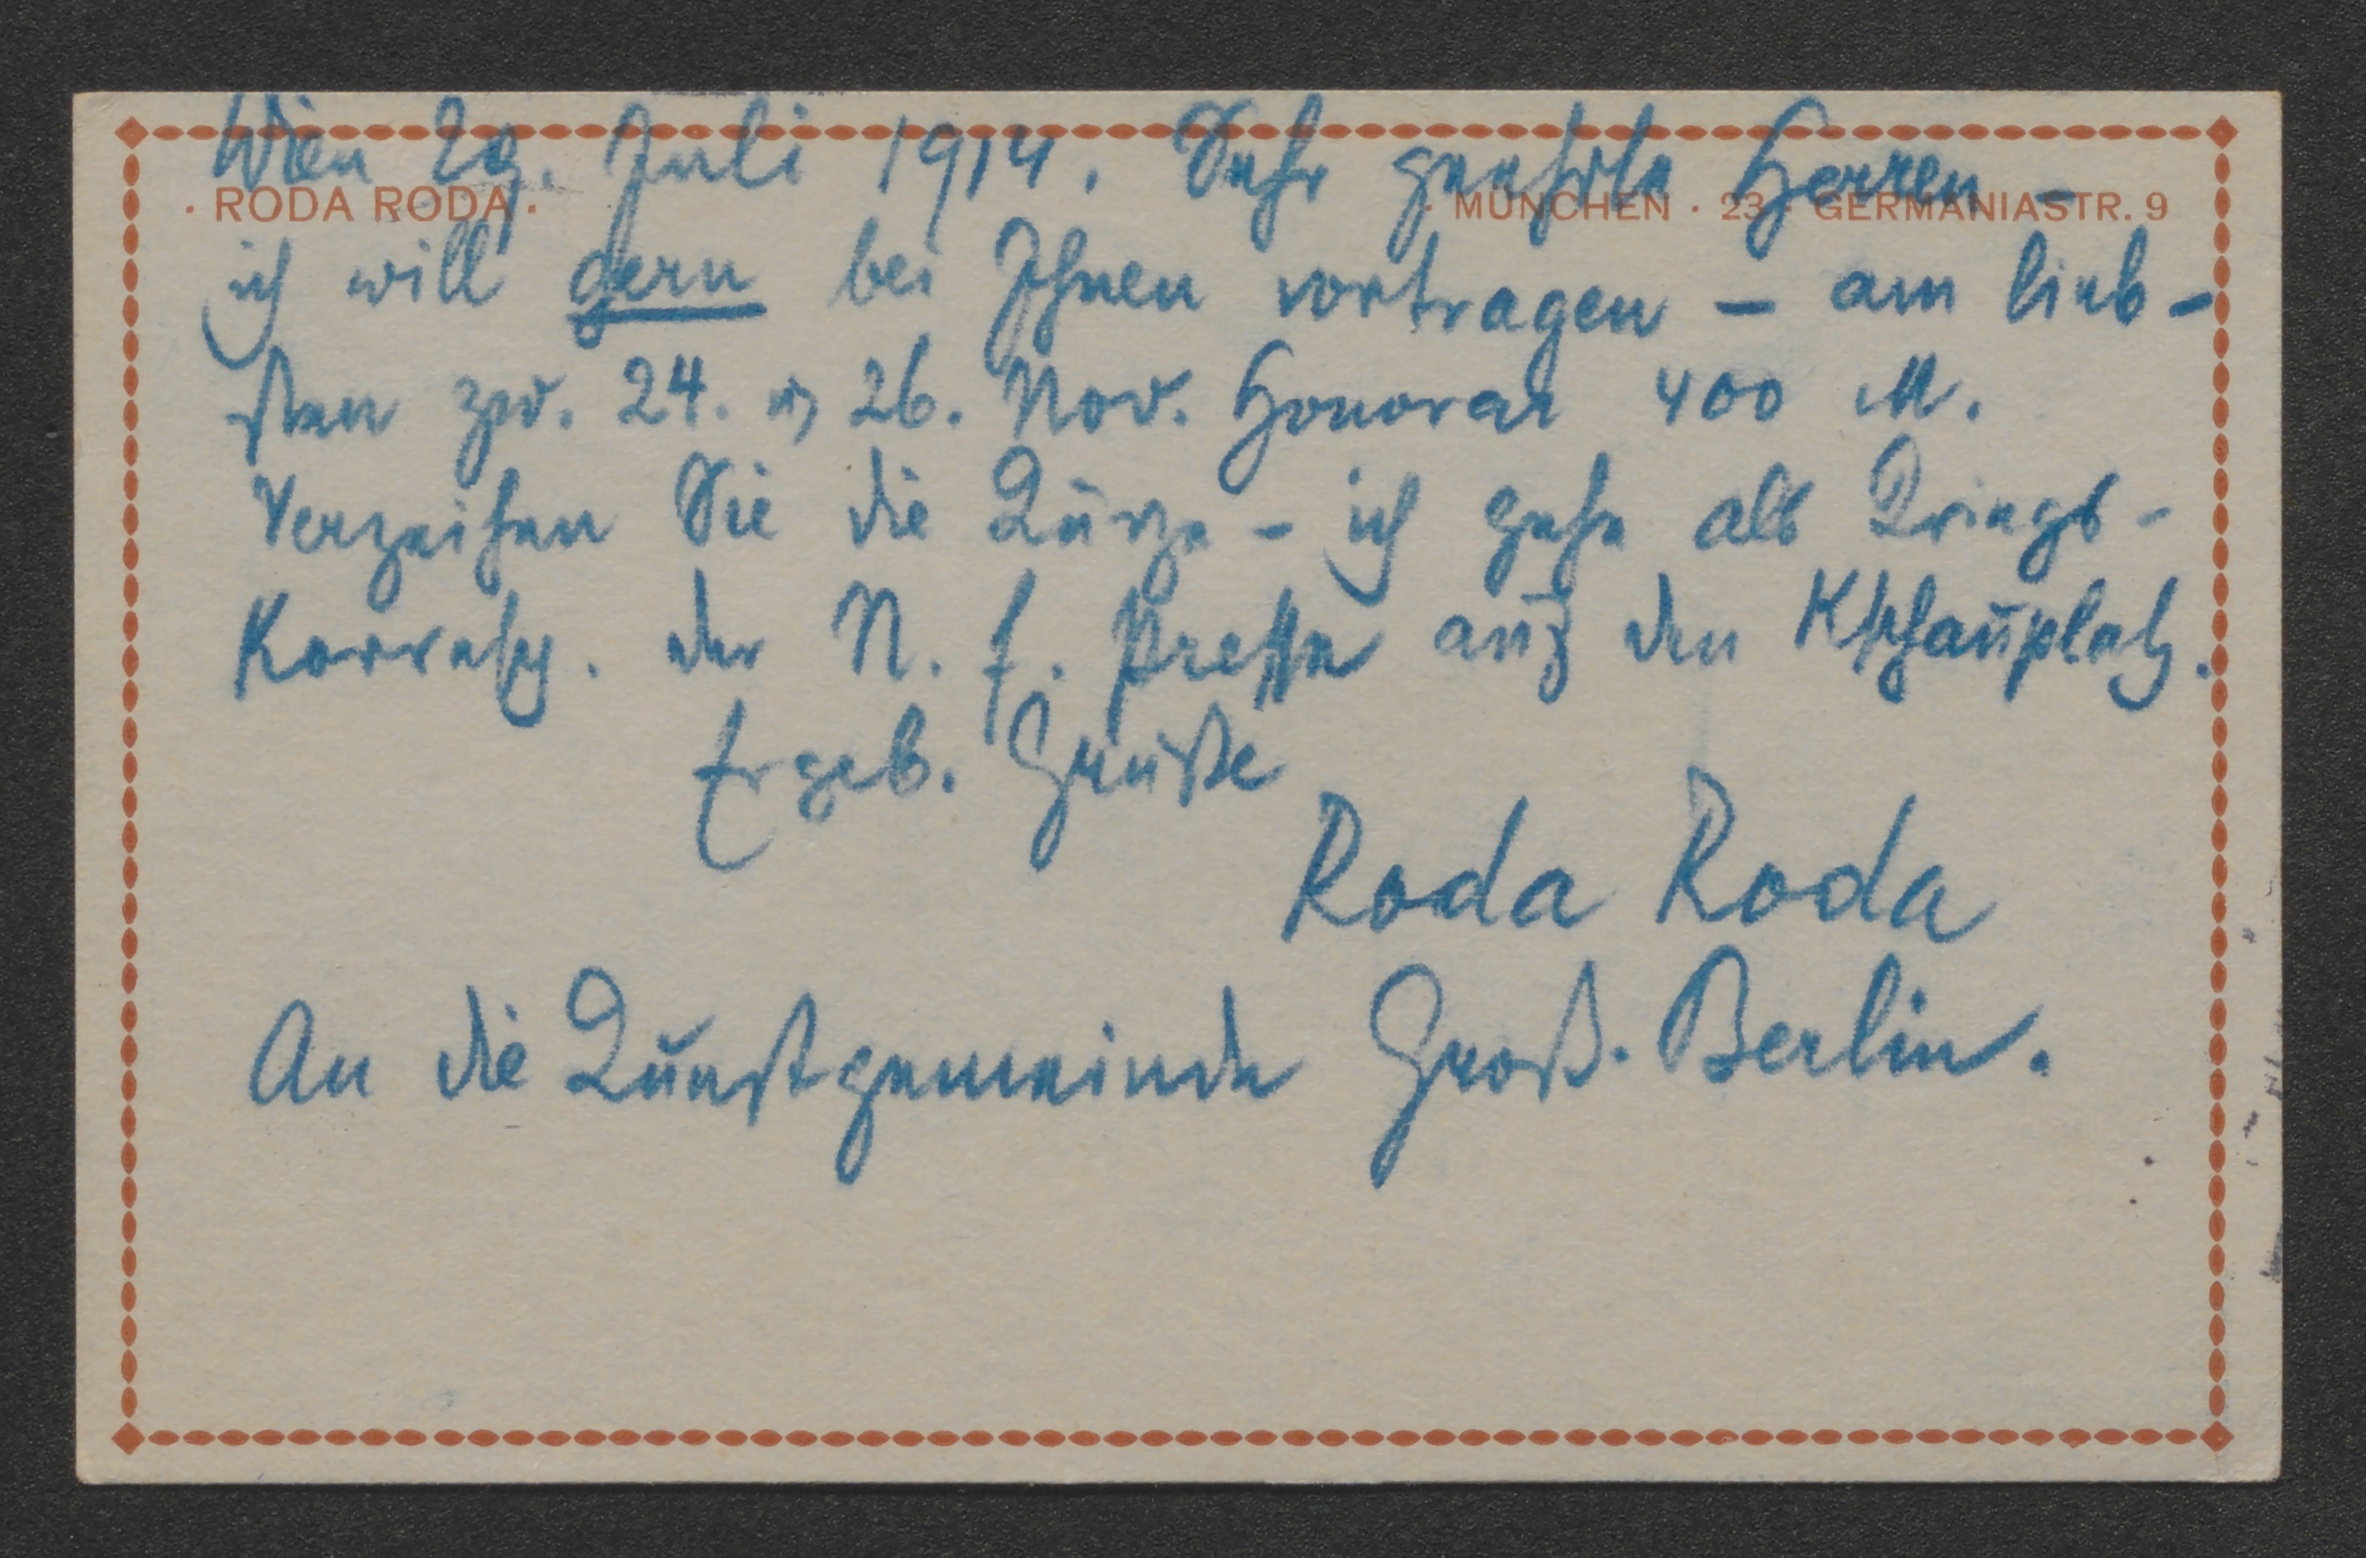 Wien 29. Juli 1914. Sehr geehrte Herren –
· RODA RODA · · MÜNCHEN · 23 · GERMANIASTR. 9
ich will gern bei Ihnen vortragen – am lieb-
sten zw. 24. u 26. Nov. Honorar 400 M.
Verzeihen Sie die Kürze – ich gehe als Kriegs-
Korresp. der N. f. Presse auf den Kschauplatz.
Ergeb. Grüße
Roda Roda
An die Kunstgemeinde Groß-Berlin.